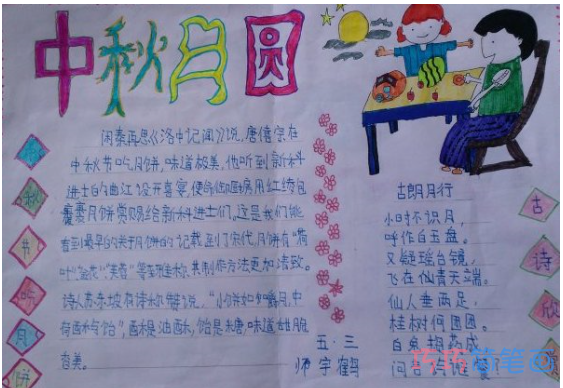 中秋月圆
闲素再思《洛中记闻》说,唐僖宗在
中秋节吃月饼,味道极美,他听到新科
进士的曲江设开喜宴,便命御厨房用红绫包
裹着月饼赏赐给新科进士们。这是我们能
看到最早的关于月饼的记载到了宋代,月饼有“荷
叶”“金花”“芙蓉”等雅称,其制作方法更加清致。
诗人苏东坡有诗称赞说,“小饼如嚼月,中
有酥和饴”,酥是油酥,饴是
味道
香美。
五·三
师宇鹤
古朗月行
小时不识月,
呼作白玉盘。
又疑瑶台镜,
飞在仙青天端。
仙人垂两足,
桂树何团团。
白兔捣药成
问言
秋
节
吃
月
饼
古
诗
欣
巧巧简笔画